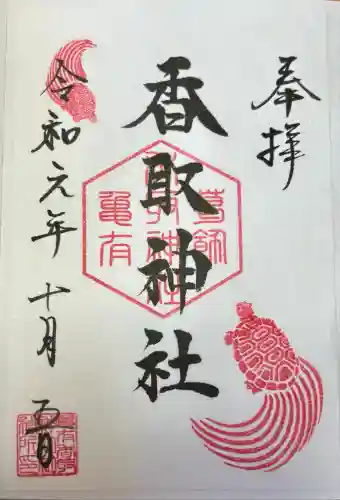 奉拝
香取神社
葛飾
亀有
香取神社
令和元年十月五日